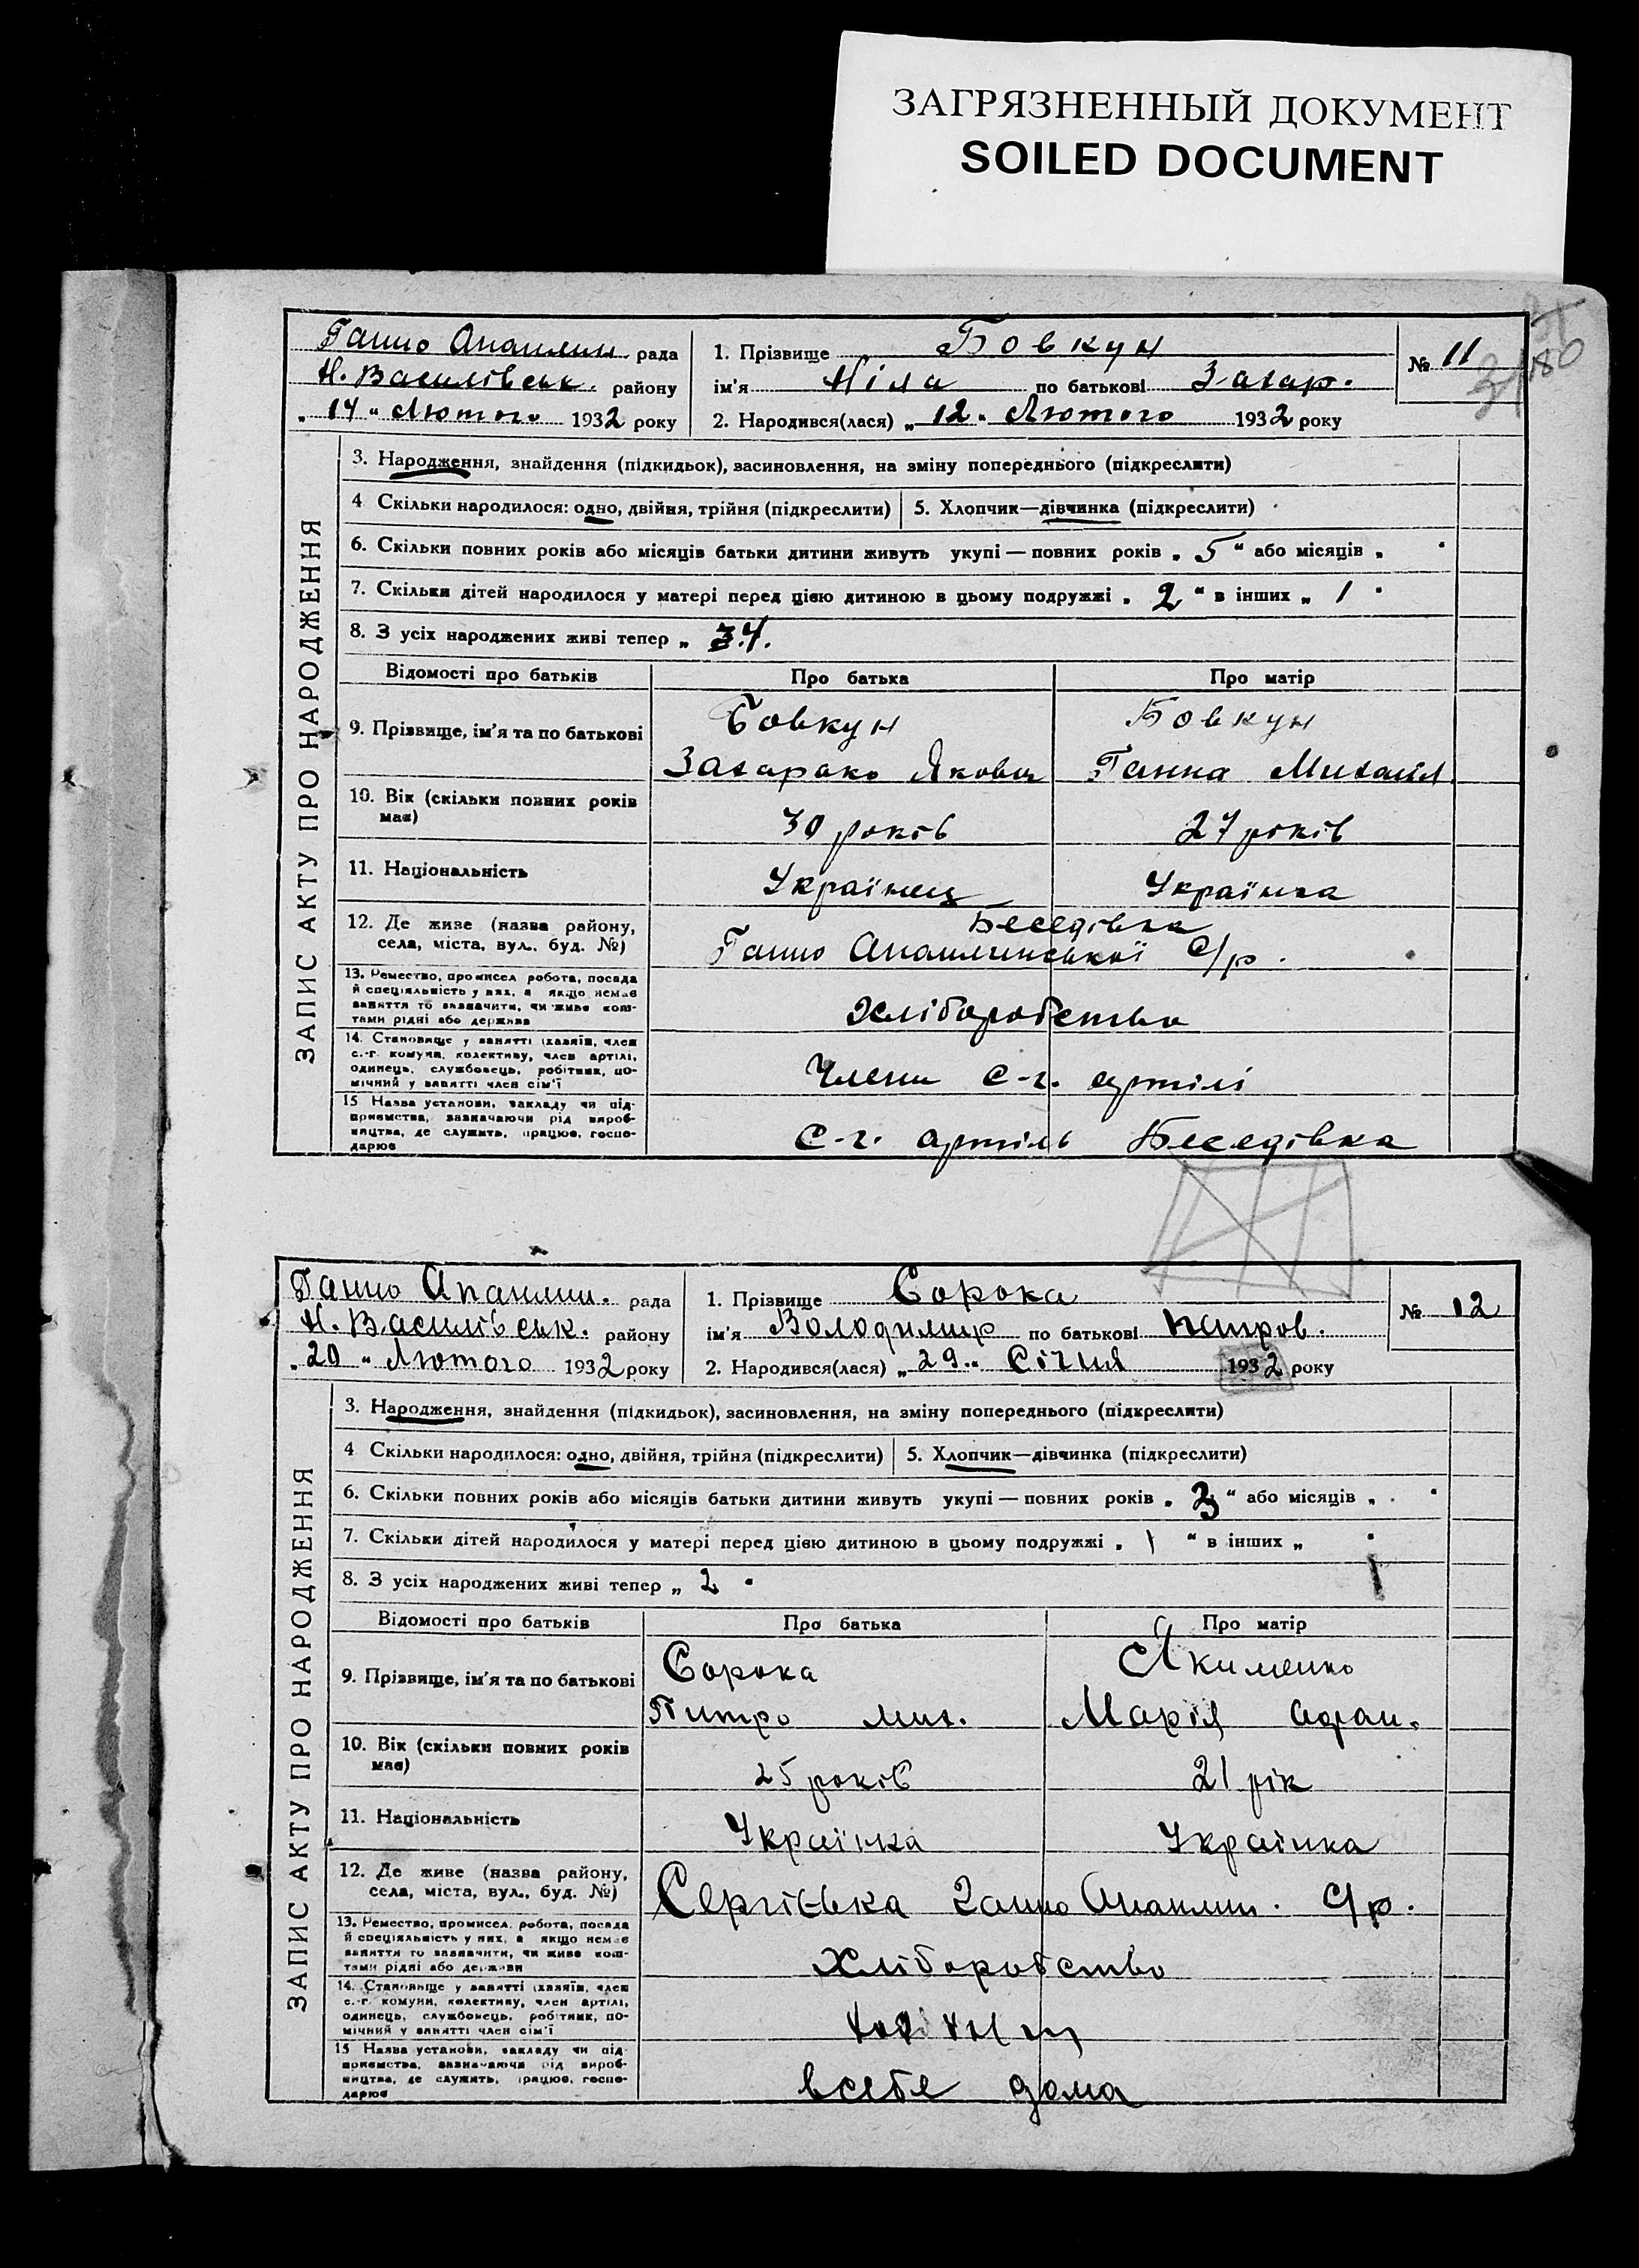 ЗАГРЯЗНЕННЫЙ ДОКУМЕНТ
SOILED DOCUMENT
180
Ганно Опанлин рада
Н. Василівськ. району
„14“ Лютого 1932 року
1. Прізвище Бовкун
ім'я Ніла по батькові Захар.
2. Народився(лася) „12“ Лютого 1932 року
№ 11
ЗАПИС АКТУ ПРО НАРОДЖЕННЯ
3. Народження, знайдення (підкидьок), засиновлення, на зміну попереднього (підкреслити)
4 Скільки народилося: одно, двійня, трійня (підкреслити) 5. Хлопчик—дівчинка (підкреслити)
6. Скільки повних років або місяців батьки дитини живуть укупі — повних років „5“ або місяців „
7. Скільки дітей народилося у матері перед цією дитиною в цьому подружжі „2“ в інших „1
8. З усіх народжених живі тепер „
Відомості про батьків Про батька Про матір
9. Прізвище, ім'я та по батькові
Бовкун Бовкун
Захарко Якови Ганна Михайл
10. Вік (скільки повних років має)
30 років 27 років
11. Національність Українец Українка
12. Де живе (назва району, села, міста, вул., буд. №)
Беседівка
Ганно Опанлинської С/р.
13. Ремество, промисел робота, посада й спеціяльність у них, а якщо немає заняття то зазначити, чи живе коштами рідні або держави
Хліборобство
14. Становище у занятті (хазяїн, член с.-г. комуни, колективу, член артілі, одинець, службовець, робітник, помічний у занятті член сім'ї
Члени С-г. артілі
15 Назва установи, закладу чи підприємства, зазначаючи рід виробництва, де служить, працює, господарює
С-г. артіль Беседівка
Ганно Опанлин. рада
Н. Василівськ. району
„20“ Лютого 1932 року
1. Прізвище Сорока
ім'я Володимир по батькові Петров.
2. Народився(лася) „29“ Січня 1932 року
№ 12
ЗАПИС АКТУ ПРО НАРОДЖЕННЯ
3. Народження, знайдення (підкидьок), засиновлення, на зміну попереднього (підкреслити)
4 Скільки народилося: одно, двійня, трійня (підкреслити) 5. Хлопчик—дівчинка (підкреслити)
6. Скільки повних років або місяців батьки дитини живуть укупі — повних років „3“ або місяців „
7. Скільки дітей народилося у матері перед цією дитиною в цьому подружжі „1“ в інших „
8. З усіх народжених живі тепер „2
Відомості про батьків Про батька Про матір
9. Прізвище, ім'я та по батькові
Сорока Якименко
Питро мих. Марія
10. Вік (скільки повних років має)
25 років 21 рік
11. Національність Українка Українка
12. Де живе (назва району, села, міста, вул., буд. №)
Сергіівка Ганно Опанлин. С/р.
13. Ремество, промисел, робота, посада й спеціяльність у них, а якщо немає заняття то зазначити, чи живе коштами рідні або держави
Хліборобство
14. Становище у занятті (хазяїн, член с.-г. комуни, колективу, член артілі, одинець, службовець, робітник, помічний у занятті член сім'ї
15 Назва установи, закладу чи підприємства, зазначаючи рід виробництва, де служить, працює, господарює
всебе дома